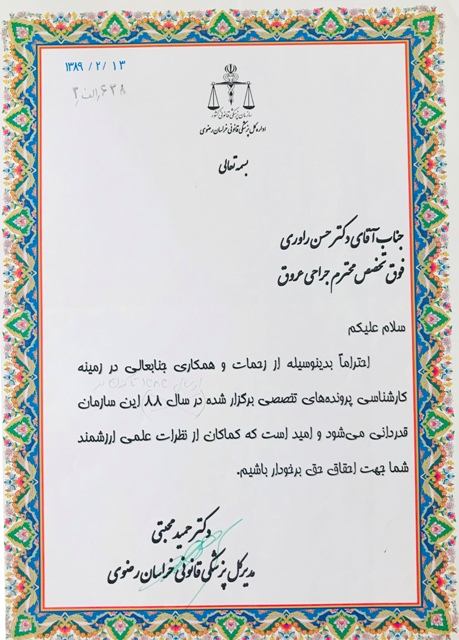 ۱۳۸۹ / ۲ / ۱۳
سازمان پزشکی قانونی کشور
اداره کل پزشکی قانونی خراسان رضوی
بسمه تعالی
جناب آقای دکتر حسن راوری
فوق تخصص محترم جراحی عروق
سلام علیکم
احتراماً بدینوسیله از زحمات و همکاری جنابعالی در زمینه
کارشناسی پرونده‌های تخصصی برگزار شده در سال ۸۸ این سازمان
قدردانی می‌شود و امید است که کماکان از نظرات علمی ارزشمند
شما جهت احقاق حق برخودار باشیم.
دکتر حمید محبتی
مدیرکل پزشکی قانونی خراسان رضوی